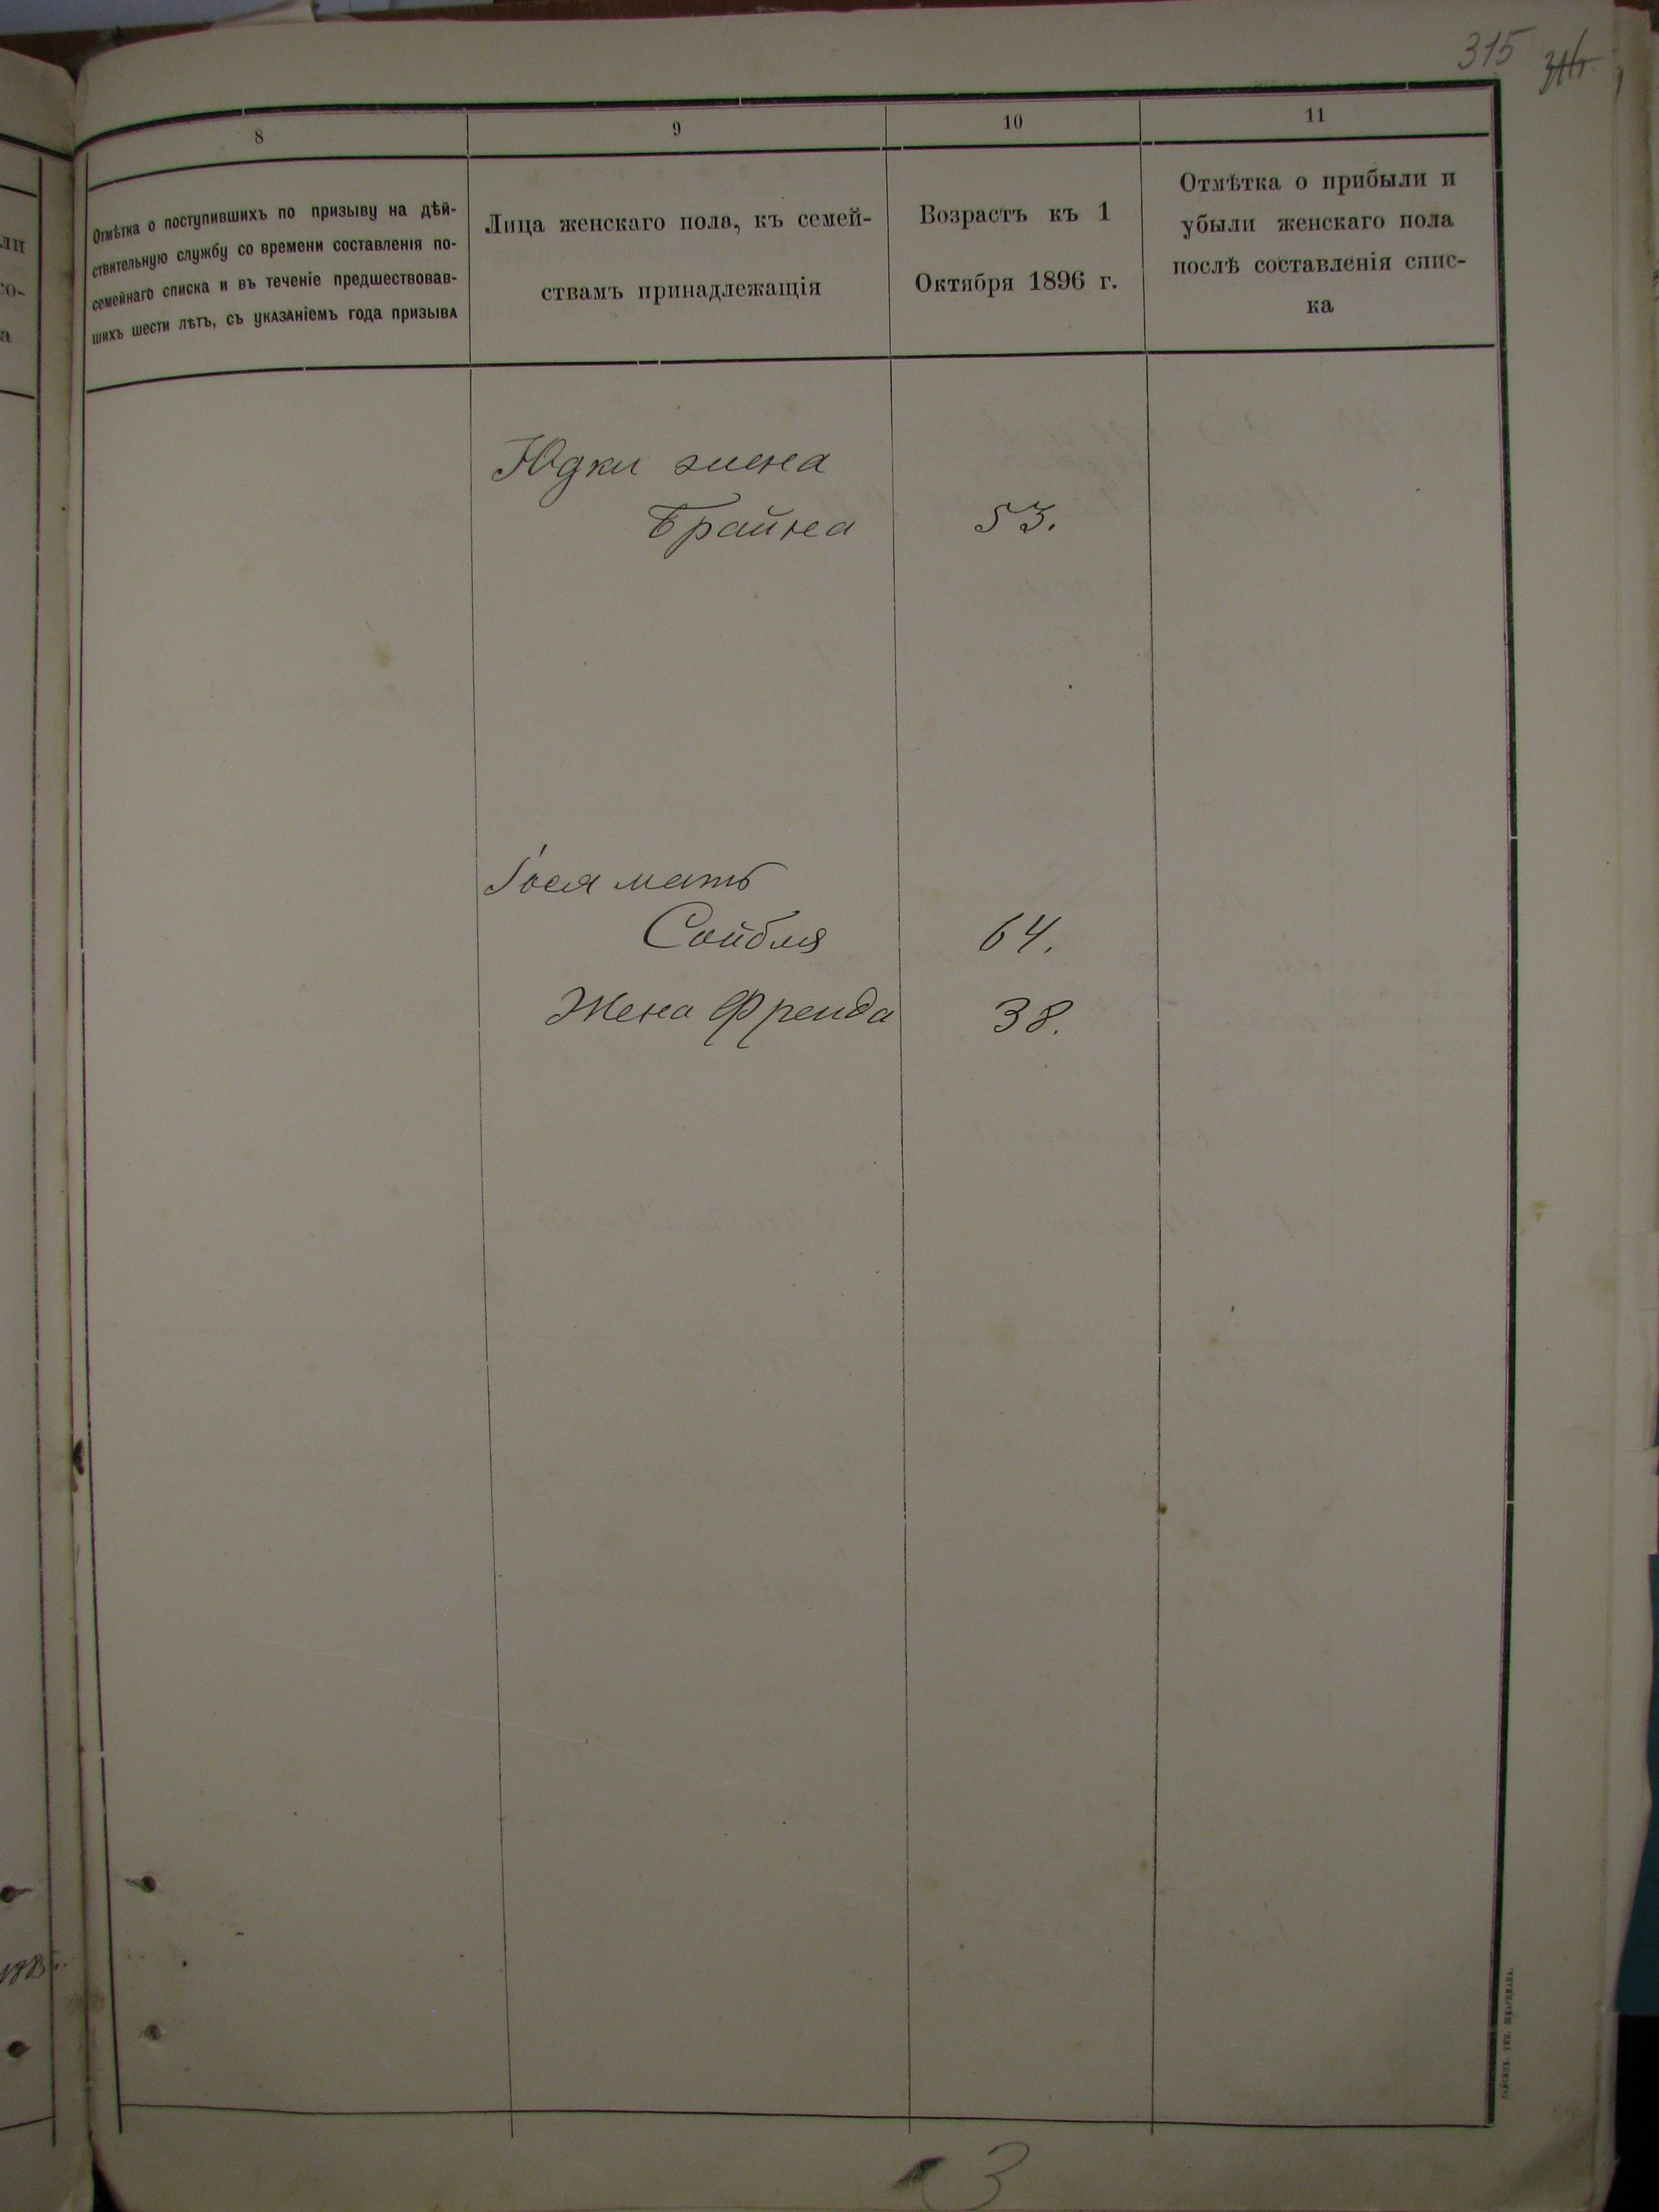 315
8
9
10
11
Отмѣтка о поступившихъ по призыву на дѣй-
ствительную службу со времени составленія по-
семейнаго списка и въ теченіе предшествовав-
шихъ шести лѣтъ, съ указаніемъ года призыва
Лица женскаго пола, къ семей-
ствамъ принадлежащія
Возрастъ къ 1
Октября 1896 г.
Отмѣтка о прибыли и
убыли женскаго пола
послѣ составленія спис-
ка
Юдки жена
Брайна 53.
мать
Сойбля 64.
Жена Фрейда 38.
3